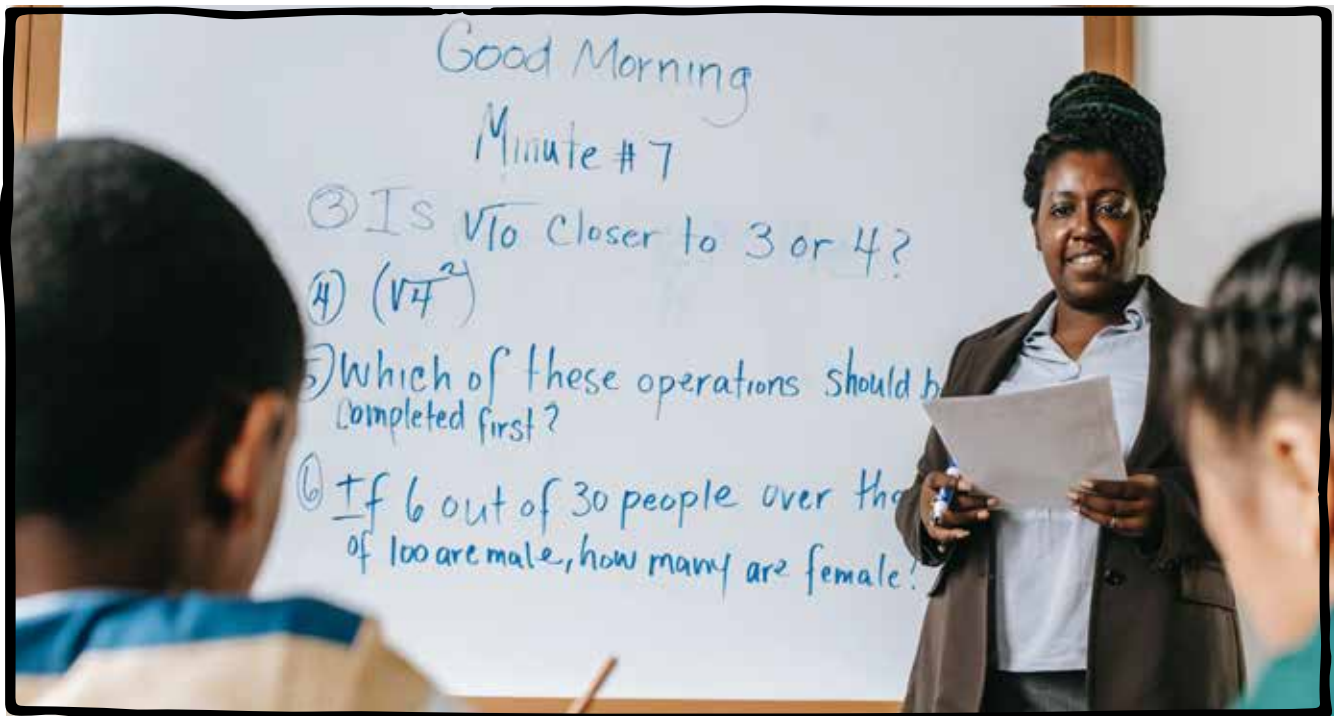 Good Morning
Minute # 7
③ Is √10 closer to 3 or 4?
④ (√4²)
5) Which of these operations should b
completed first?
⑥ If 6 out of 30 people over the
of 100 are male, how many are female?